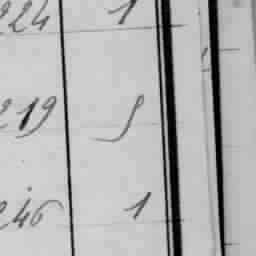 224 1
219 5
246 1